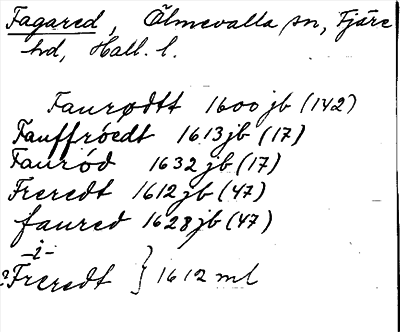 Fagared, Ölmevalla sn, Fjäre
hd, Hall. l.
Faurødtt 1600 jb (142)
Fauffróedt 1613 jb (17)
Fauród 1632 jb (17)
Freredt 1612 jb (47)
faured 1628 jb (47)
-i-
?Freredt } 1612 ml